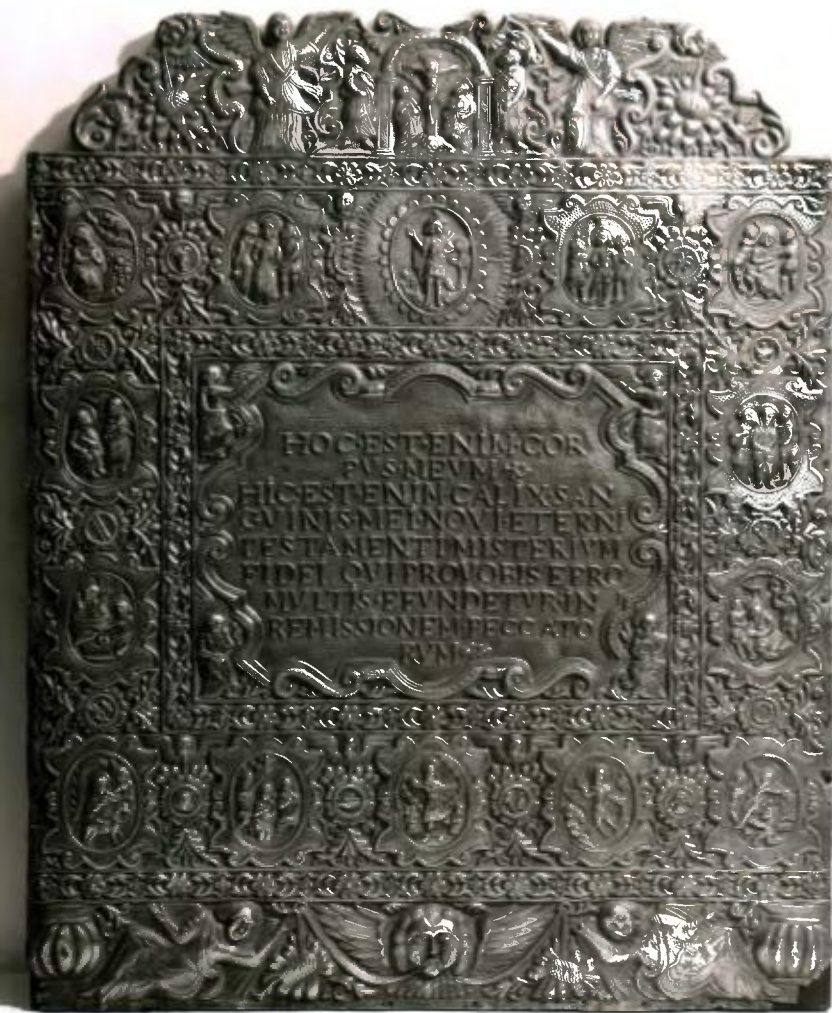 HOC·EST·ENIM·COR
PVS·MEVM
HIC·EST·ENIM·CALIX·SAN
GVINIS·MEI·NOVI·ETERNI
TESTAMENTI·MISTERIVM
FIDEI·QVI·PRO·VOBIS·E·PRO
MVLTIS·EFVNDETVR·IN
REMISSIONEM·PECCATO
RVM